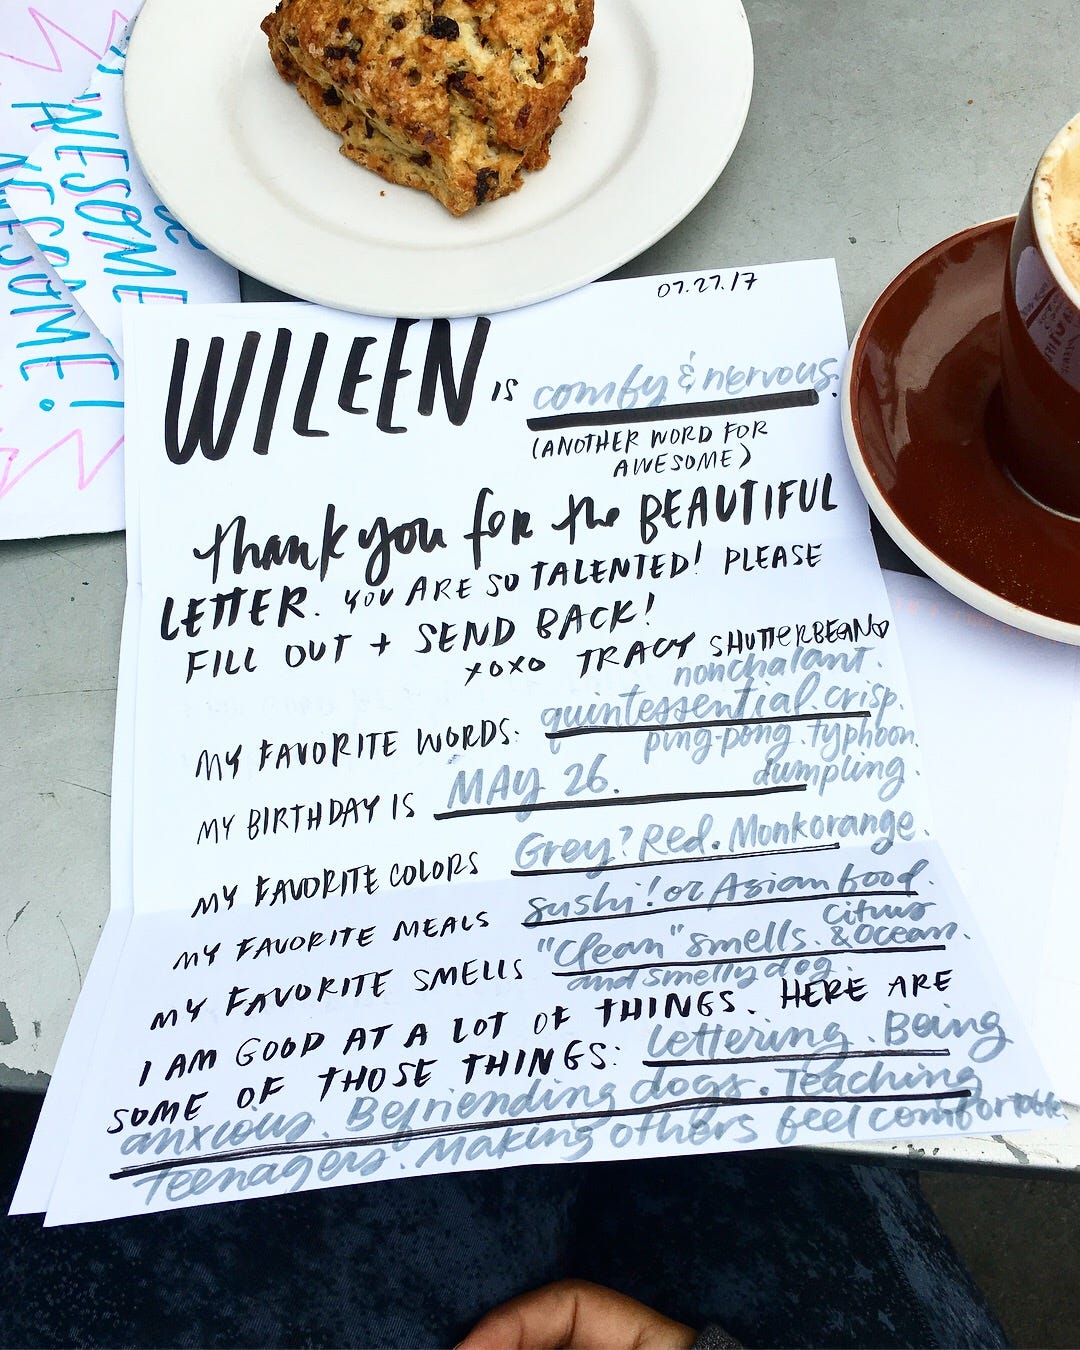 AWESOME
AWESOME!
07.27.17
WILEEN IS comfy & nervous.
(ANOTHER WORD FOR
AWESOME)
thank you for the BEAUTIFUL
LETTER. YOU ARE SO TALENTED! PLEASE
FILL OUT + SEND BACK!
XOXO TRACY SHUTTERBEAN
nonchalant.
MY FAVORITE WORDS: quintessential. crisp.
ping-pong. typhoon.
dumpling.
MY BIRTHDAY IS MAY 26.
MY FAVORITE COLORS Grey? Red. Monkorange.
MY FAVORITE MEALS Sushi! or Asian food.
citrus
MY FAVORITE SMELLS "Clean" smells. & ocean.
and smelly dog.
I AM GOOD AT A LOT OF THINGS. HERE ARE
SOME OF THOSE THINGS: Lettering. Being
anxious. Befriending dogs. Teaching
Teenagers. Making others feel comfortable.